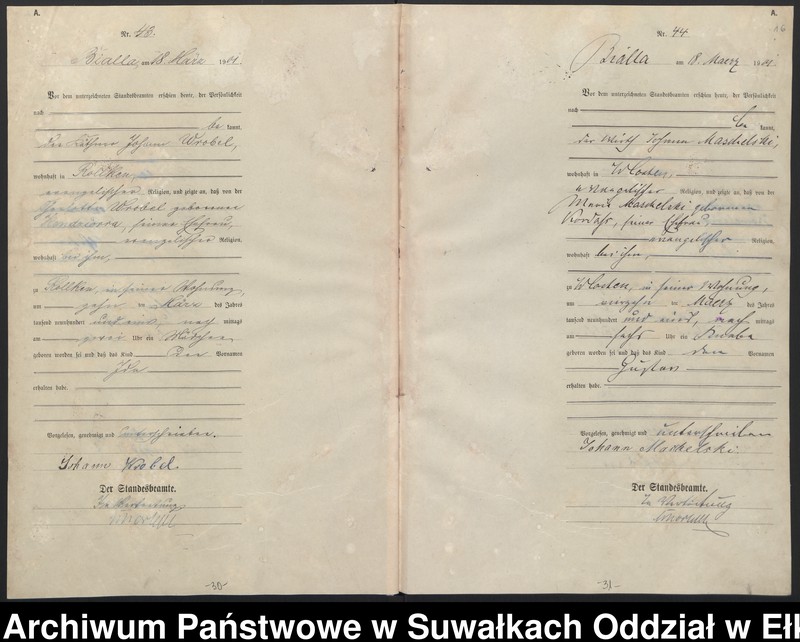 A.
Nr. 43.
Bialla, am 18. März 1901.
Vor dem unterzeichneten Standesbeamten erschien heute, der Persönlichkeit
nach
be kannt,
der Käthner Johann Wrobel,
wohnhaft in
evangelischer Religion, und zeigte an, daß von der
Wrobel geborenen
seiner Ehefrau,
evangelischer Religion,
wohnhaft bei ihm,
zu in seiner Wohnung,
am zehn ten März des Jahres
tausend neunhundert und eins, nach mittags
um zwei Uhr ein Mädchen
geboren worden sei und daß das Kind den Vornamen
Ida
erhalten habe.
Vorgelesen, genehmigt und unterschrieben.
Johann Wrobel.
Der Standesbeamte.
In Vertretung
-30-
A.
Nr. 44
Bialla am 18. Maerz 1901.
Vor dem unterzeichneten Standesbeamten erschien heute, der Persönlichkeit
nach
be kannt,
der Wirth Johann Maschelski,
wohnhaft in Wlosten,
evangelischer Religion, und zeigte an, daß von der
Marie Maschelski geborenen
seiner Ehefrau,
evangelischer Religion,
wohnhaft bei ihm,
zu Wlosten, in seiner Wohnung,
am vierzehn ten Maerz des Jahres
tausend neunhundert und eins, nach mittags
um sechs Uhr ein Knabe
geboren worden sei und daß das Kind den Vornamen
Gustav
erhalten habe.
Vorgelesen, genehmigt und unterschrieben
Johann Maschelski.
Der Standesbeamte.
In Vertretung
-31-
Archiwum Państwowe w Suwałkach Oddział w Eł